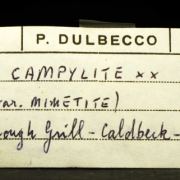 P. DULBECCO
CAMPYLITE xx
var. MIMETITE)
ough Gill - Caldbeck -